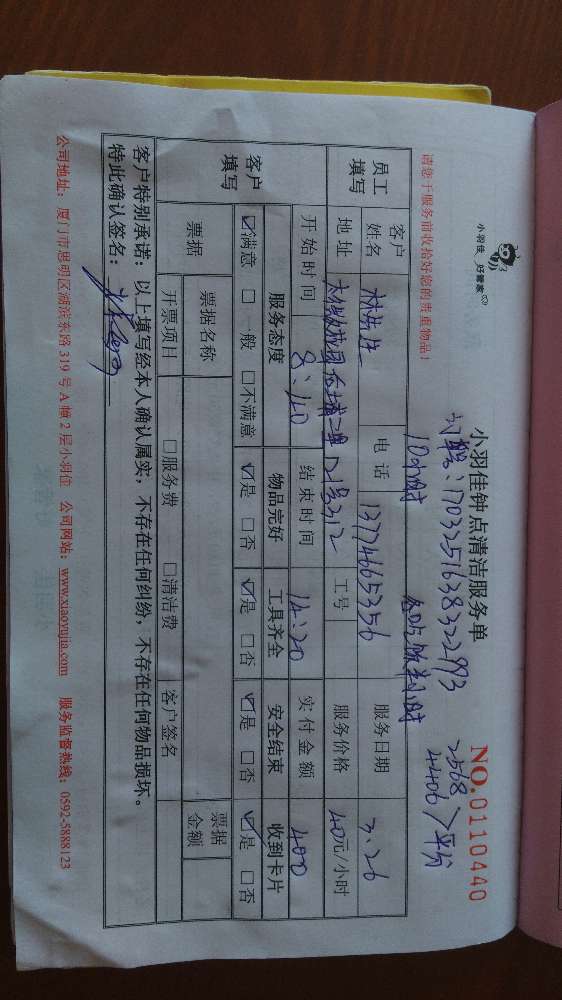 小羽佳 好管家
请您于服务前收拾好您的贵重物品!
小羽佳钟点清洁服务单
NO.0110440
订单:1703251638322993
2568
4406 平分
10小时
员工填写
客户姓名
电话 13774665356
服务日期 3.26
地址
工号
服务价格 40元/小时
开始时间 8:40
结束时间 14:20
实付金额 400
客户填写
服务态度 物品完好 工具齐全 安全结束 收到卡片
☑满意 □一般 □不满意 ☑是 □否 ☑是 □否 ☑是 □否 ☑是 □否
票据
票据名称
票据金额
开票项目 □服务费 □清洁费 客户签名
客户特别承诺:以上填写经本人确认属实,不存在任何纠纷,不存在任何物品损坏。
特此确认签名:
公司地址:厦门市思明区湖滨东路319号A幢2层小羽佳 公司网站:www.xiaoyujia.com 服务监督热线:0592-5888123